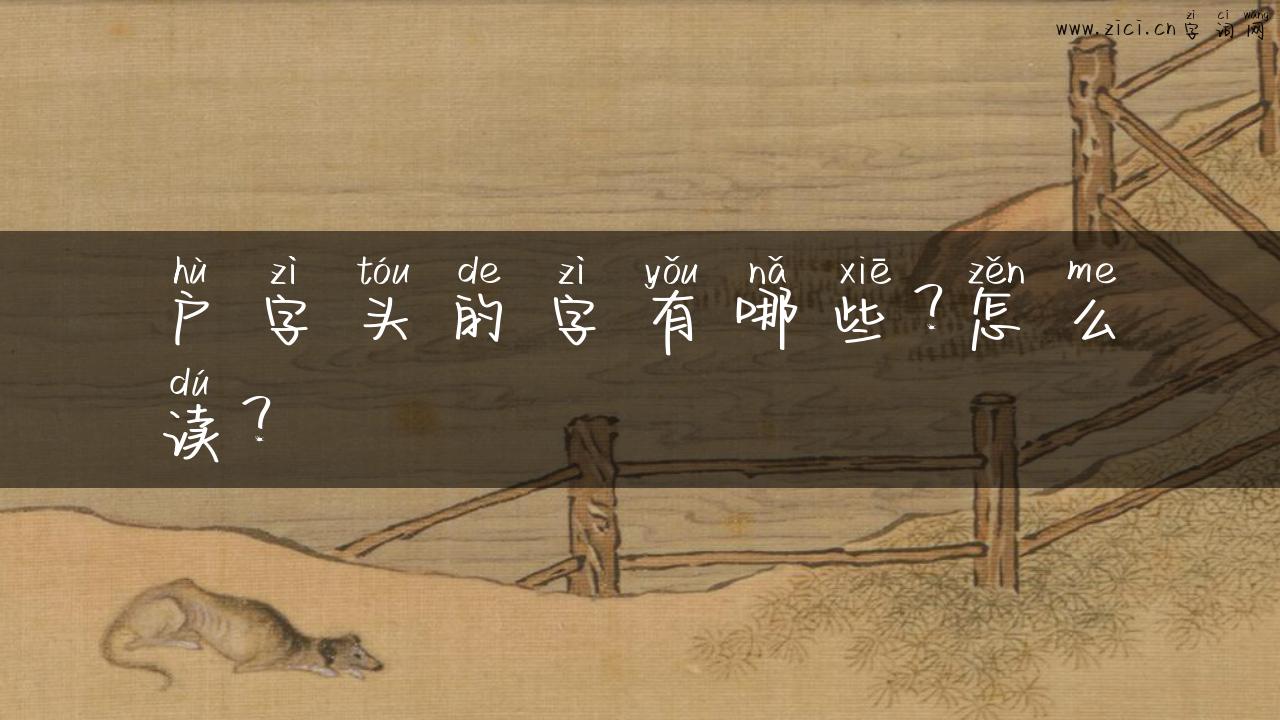 zì cí wǎng
www.zici.cn 字词网
hù zì tóu de zì yǒu nǎ xiē zěn me
户字头的字有哪些？怎么
dú
读？